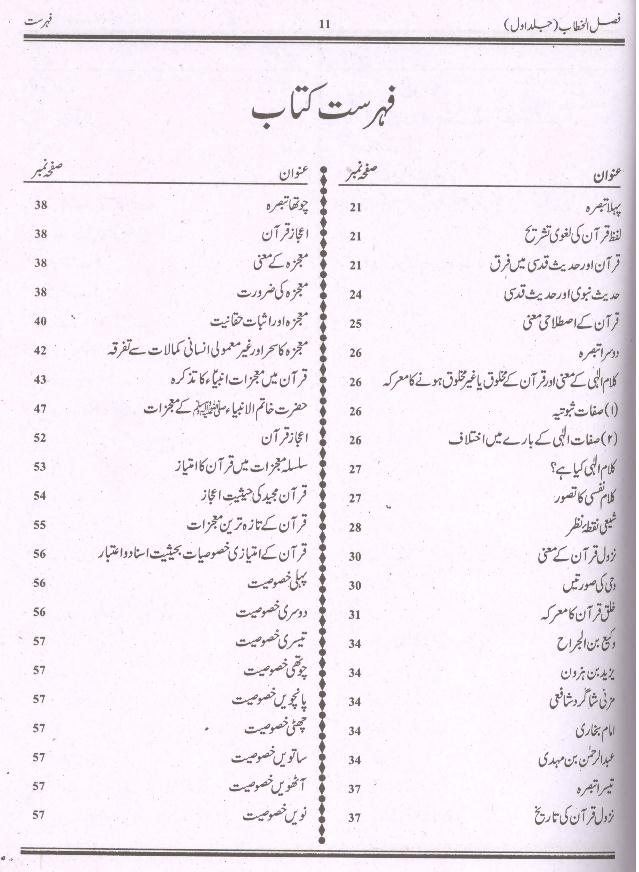 فصل الخطاب (جلد اول) 11 فہرست
فہرست کتاب
عنوان صفحہ نمبر
پہلا تبصرہ 21
لفظ قرآن کی لغوی تشریح 21
قرآن اور حدیث قدسی میں فرق 21
حدیث نبوی اور حدیث قدسی 24
قرآن کے اصطلاحی معنی 25
دوسرا تبصرہ 26
کلام الٰہی کے معنی اور قرآن کے مخلوق یا غیر مخلوق ہونے کا معرکہ 26
(۱) صفات ثبوتیہ 26
(۲) صفات الٰہی کے بارے میں اختلاف 26
کلام الٰہی کیا ہے؟ 27
کلام نفسی کا تصور 27
شیعی نقطۂ نظر 28
نزول قرآن کے معنی 30
وحی کی صورتیں 30
خلق قرآن کا معرکہ 31
وکیع بن الجراح 34
یزید بن ہزون 34
مزنی شاگرد شافعی 34
امام بخاری 34
عبدالرحمٰن بن مہدی 34
تیسرا تبصرہ 37
نزول قرآن کی تاریخ 37
عنوان صفحہ نمبر
چوتھا تبصرہ 38
اعجاز قرآن 38
معجزہ کے معنی 38
معجزہ کی ضرورت 38
معجزہ اور اثبات حقانیت 40
معجزہ کا سحر اور غیر معمولی انسانی کمالات سے تفرقہ 42
قرآن میں معجزات انبیاءؑ کا تذکرہ 43
حضرت خاتم الانبیاء ﷺ کے معجزات 47
اعجاز قرآن 52
سلسلہ معجزات میں قرآن کا امتیاز 53
قرآن مجید کی حیثیتِ اعجاز 54
قرآن کے تازہ ترین معجزات 55
قرآن کے امتیازی خصوصیات بحیثیت اسناد و اعتبار 56
پہلی خصوصیت 56
دوسری خصوصیت 56
تیسری خصوصیت 57
چوتھی خصوصیت 57
پانچویں خصوصیت 57
چھٹی خصوصیت 57
ساتویں خصوصیت 57
آٹھویں خصوصیت 57
نویں خصوصیت 57